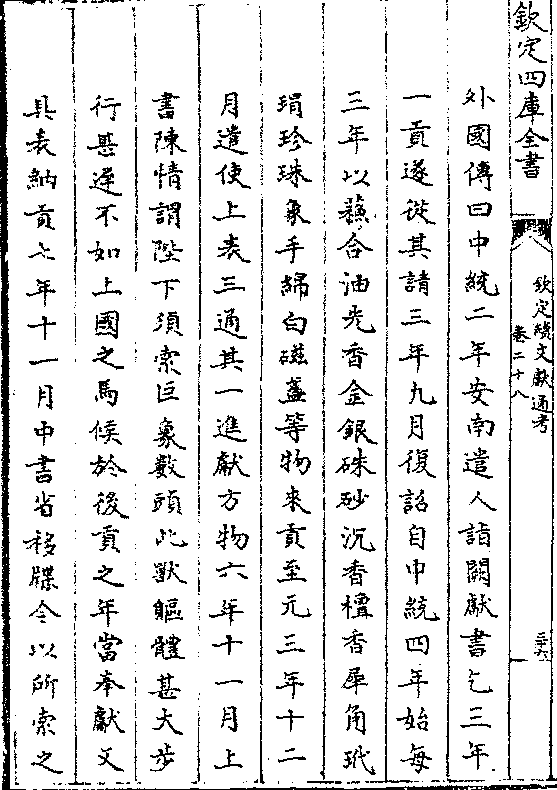 欽定四庫全書
欽定續文獻通考
卷二十八
三十六
外國傳曰中統二年安南遣人詣闕獻書乞三年
一貢遂從其請三年九月復詔自中統四年始每
三年以蘇合油光香金銀硃砂沉香檀香犀角玳
瑁珍珠象牙綿白磁盞等物來貢至元三年十二
月遣使上表三通其一進獻方物六年十一月上
書陳情謂陛下須索巨象數頭此獸軀體甚大步
行甚遲不如上國之馬候於後貢之年當奉獻又
具表納貢七年十一月中書省移牒令以所索之